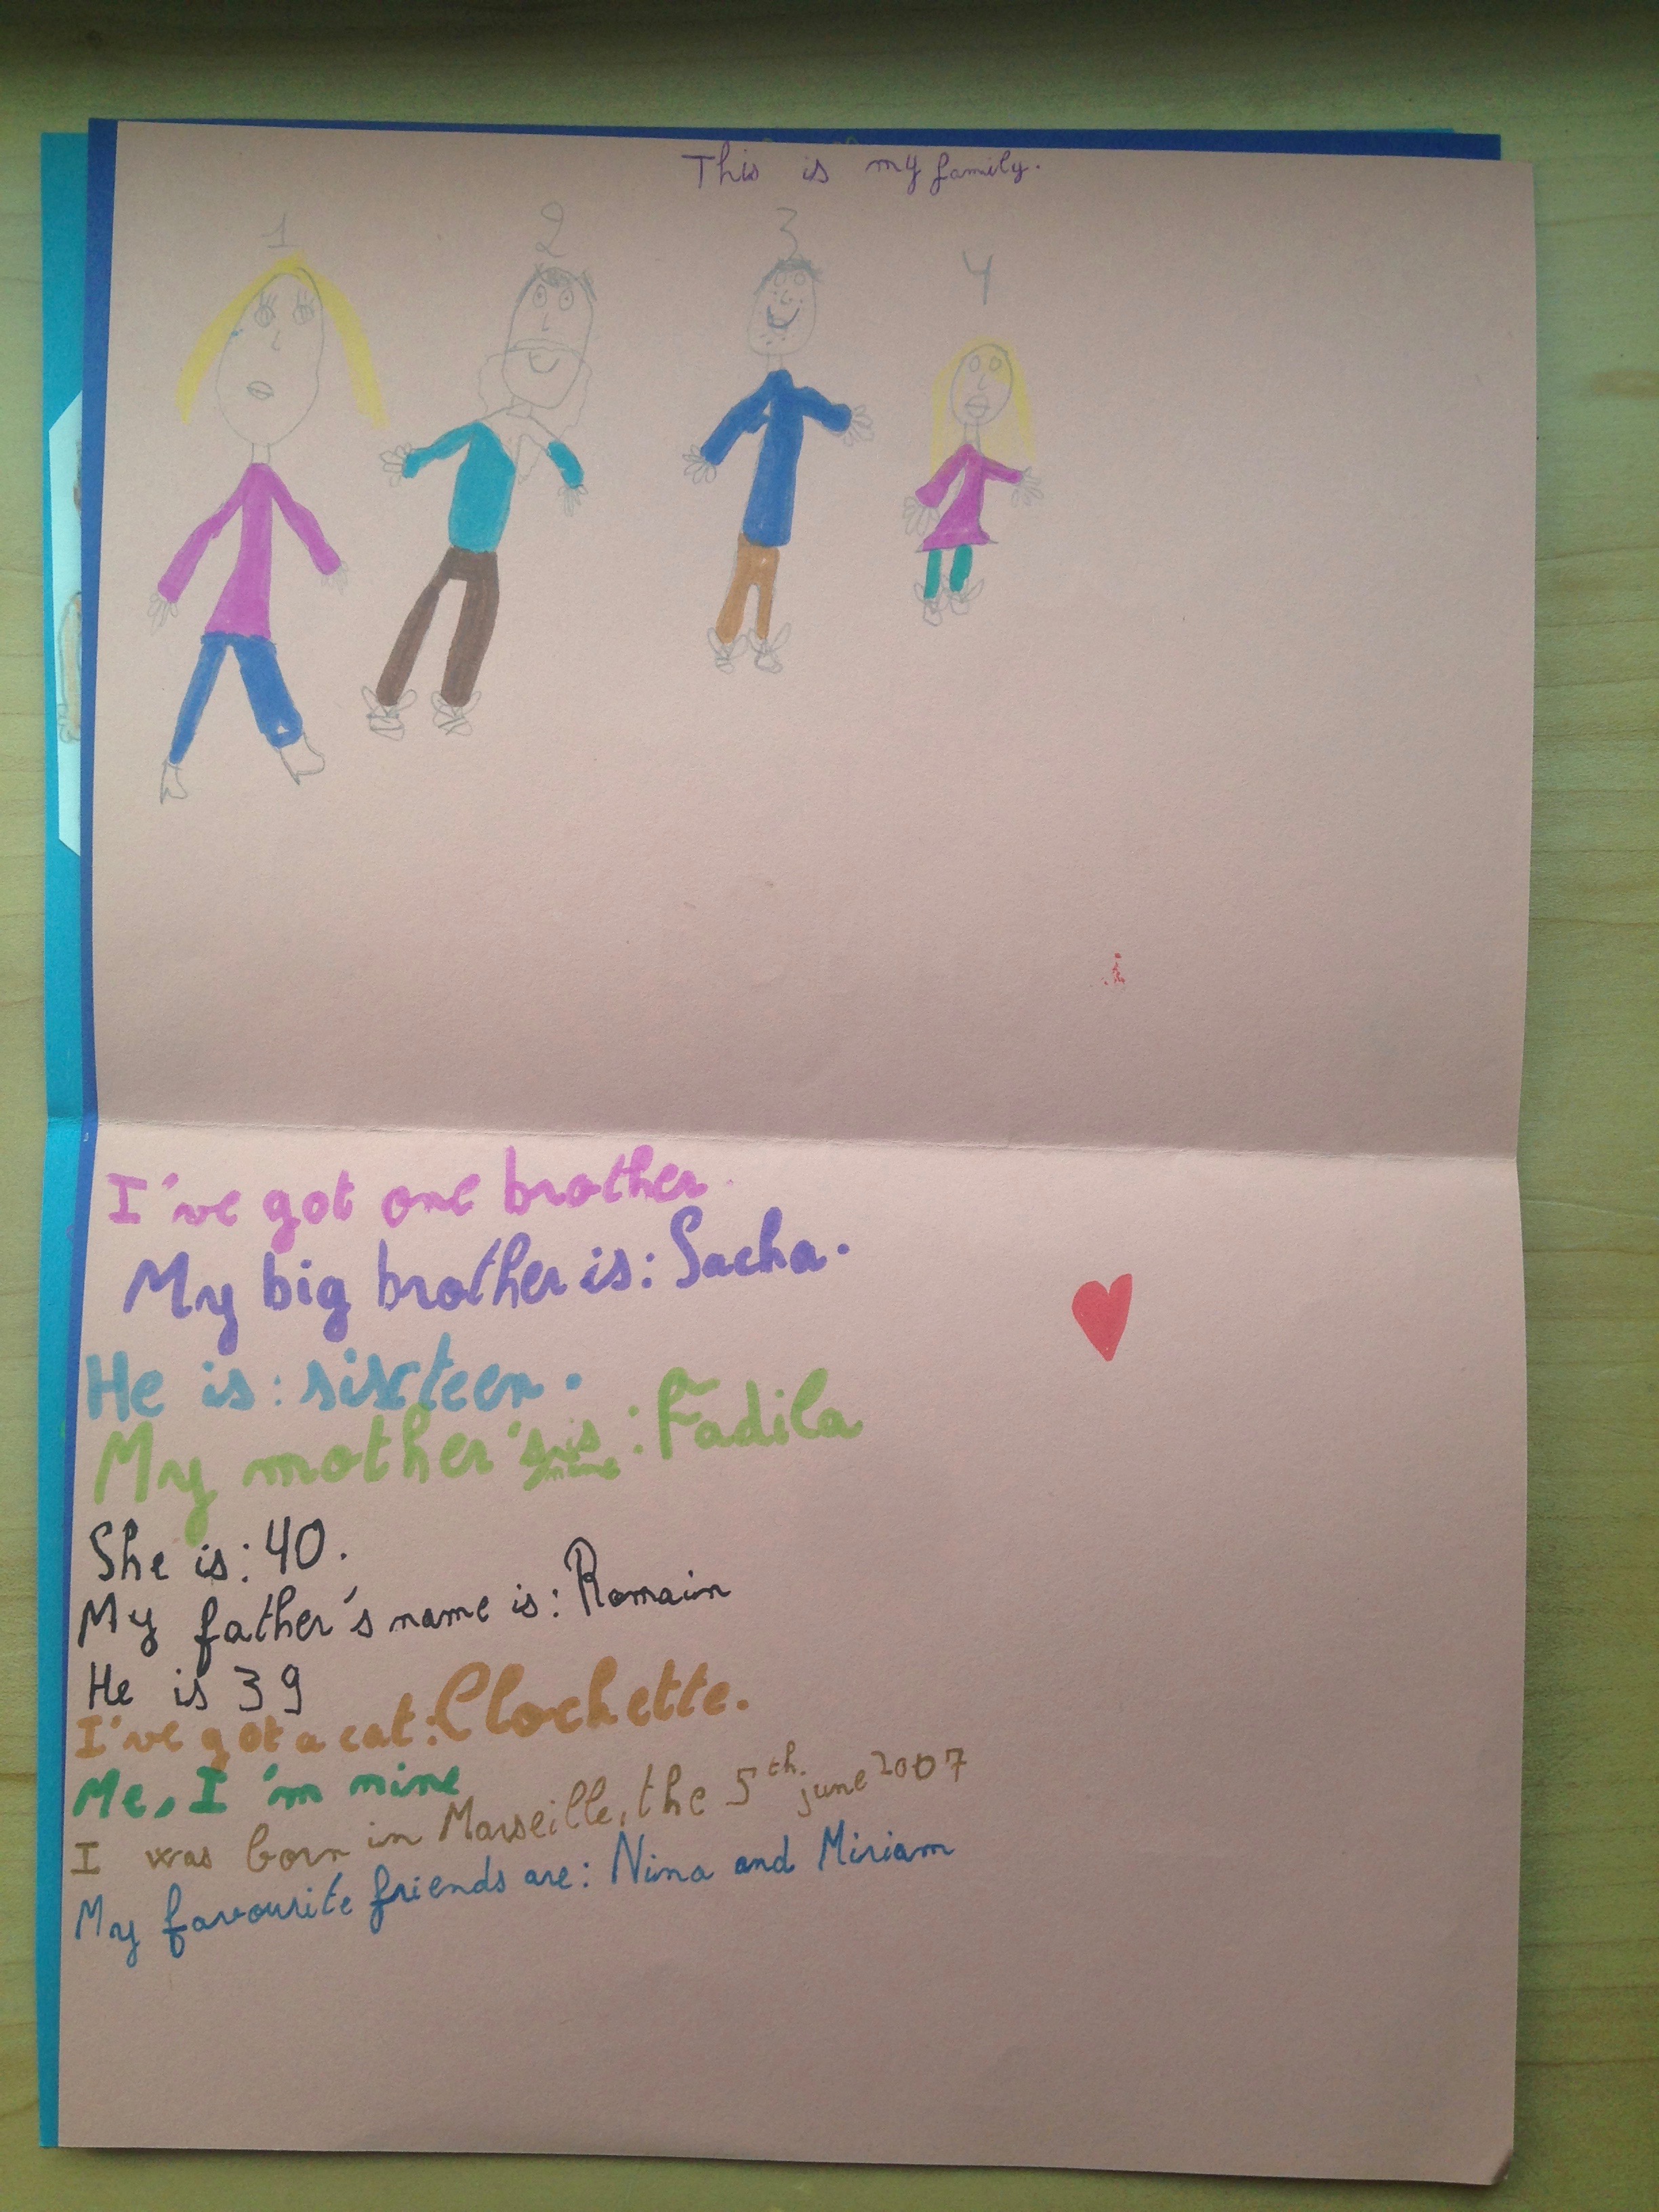 This is my family.
1 2 3 4
I've got one brother.
My big brother is: Sacha.
He is: sixteen.
My mother's name is: Fadila
She is: 40.
My father's name is: Romain
He is 39
I've got a cat: Clochette.
Me, I'm nine
I was born in Marseille, the 5th june 2007
My favourite friends are: Nina and Miriam